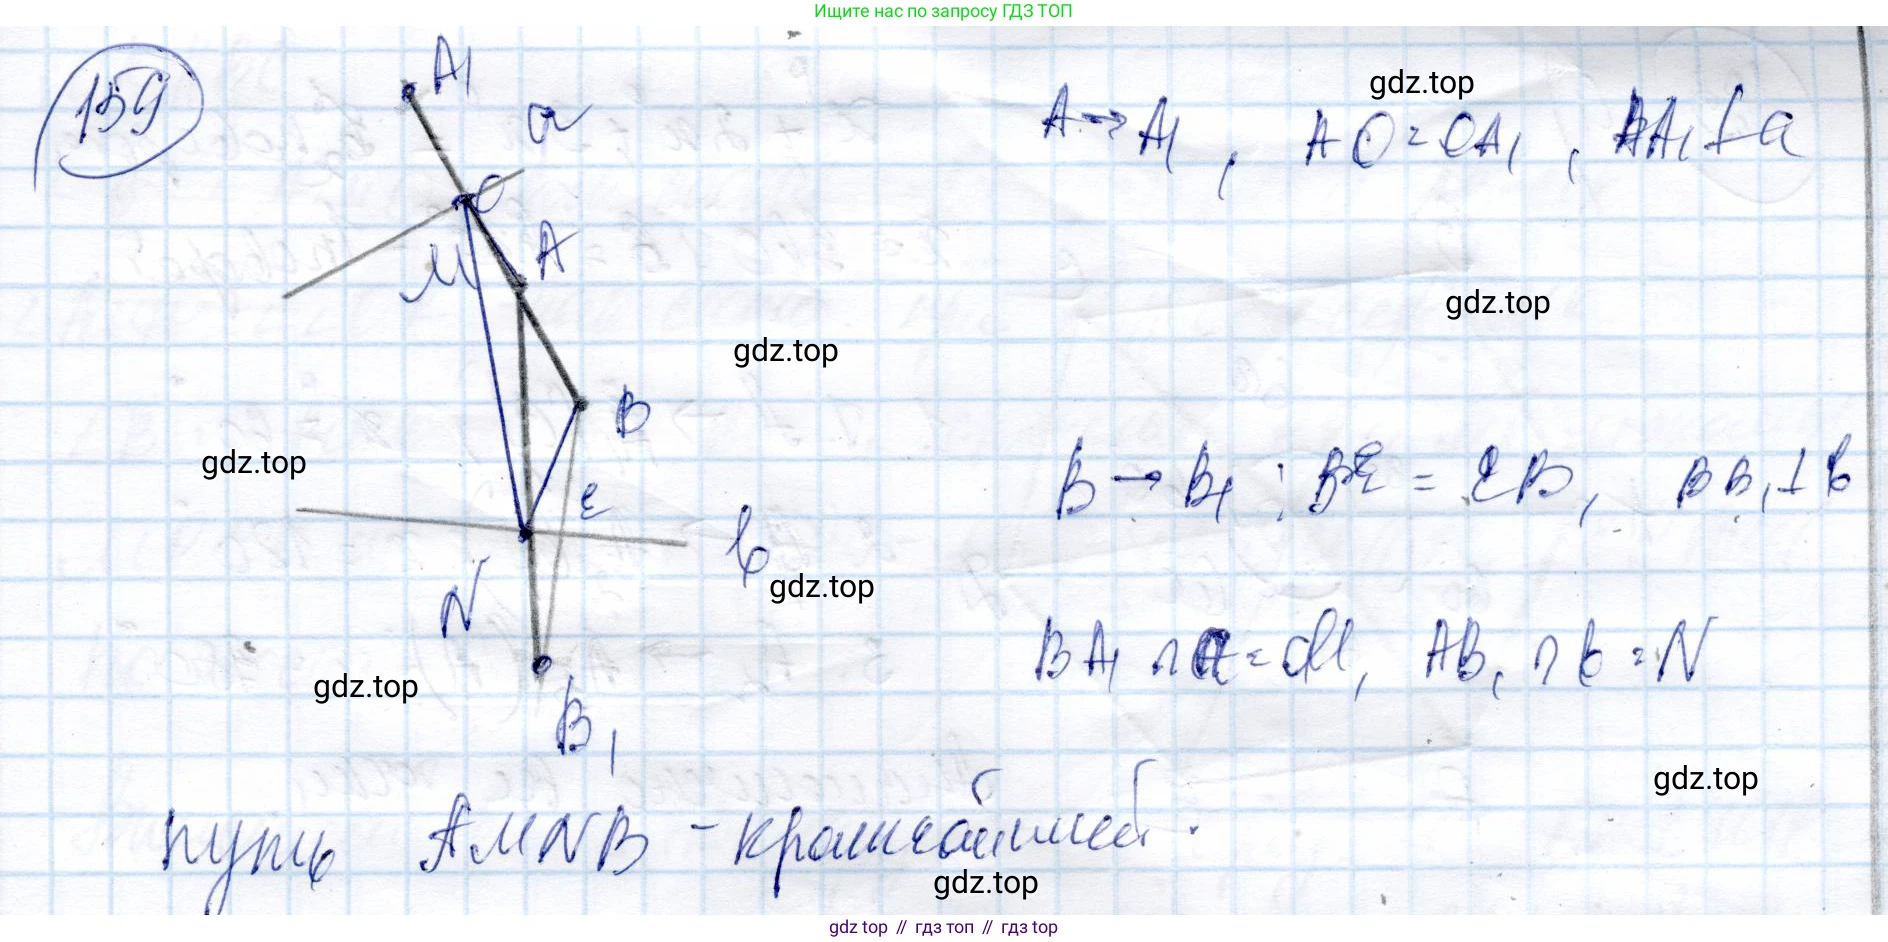 Ищите нас по запросу ГДЗ ТОП
159
A₁
a
O
M
A
B
E
b
N
B₁
A → A₁, AO = OA₁, AA₁ ⊥ a
gdz.top
gdz.top
gdz.top
gdz.top
B → B₁ : BE = EB, BB₁ ⊥ b
gdz.top
BA₁ ∩ a = M, AB₁ ∩ b = N
gdz.top
gdz.top
путь AMNB - кратчайший.
gdz.top
gdz.top // гдз топ // гдз top